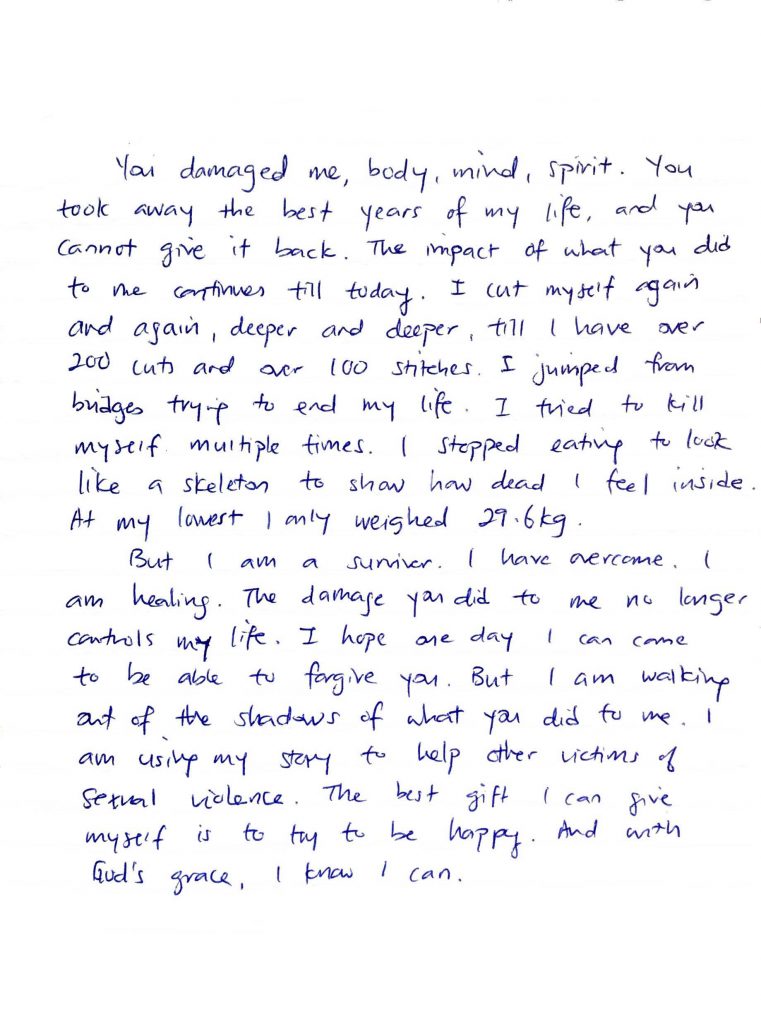 You damaged me, body, mind, spirit. You
took away the best years of my life, and you
cannot give it back. The impact of what you did
to me continues till today. I cut myself again
and again, deeper and deeper, till I have over
200 cuts and over 100 stitches. I jumped from
bridges trying to end my life. I tried to kill
myself multiple times. I stopped eating to look
like a skeleton to show how dead I feel inside.
At my lowest I only weighed 29.6kg.
But I am a survivor. I have overcome. I
am healing. The damage you did to me no longer
controls my life. I hope one day I can come
to be able to forgive you. But I am walking
out of the shadows of what you did to me. I
am using my story to help other victims of
sexual violence. The best gift I can give
myself is to try to be happy. And with
God's grace, I know I can.